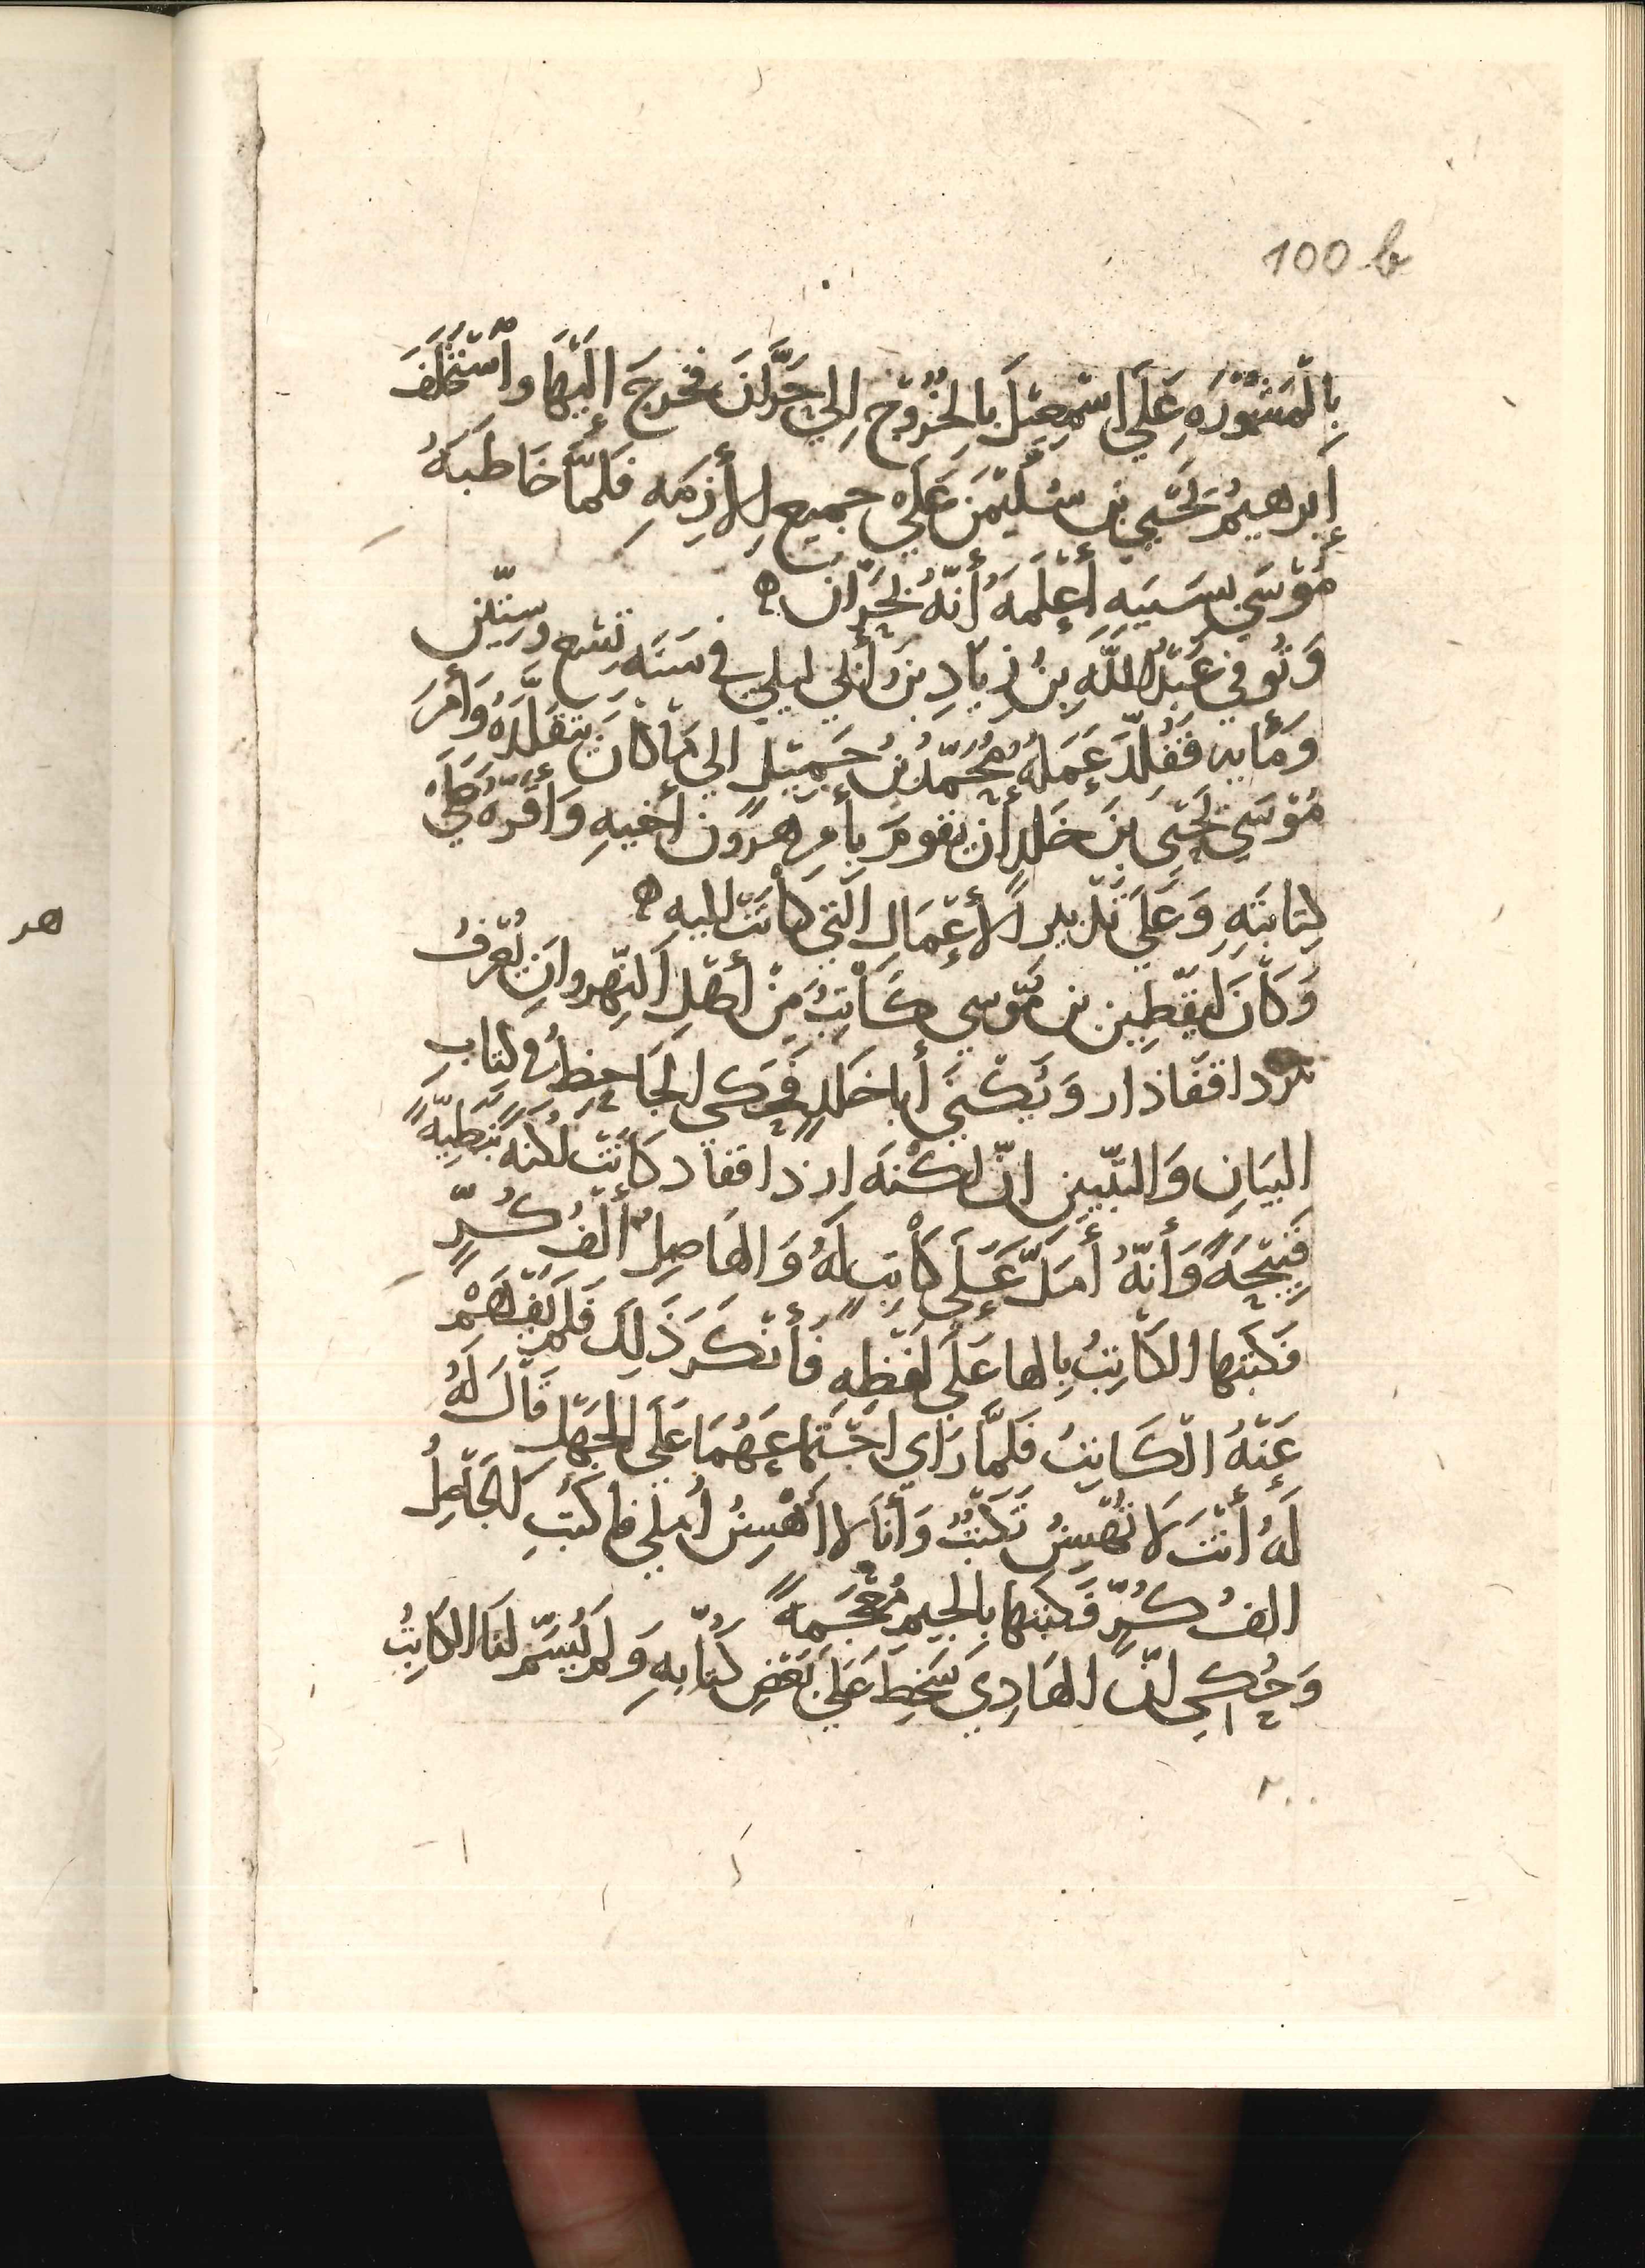 100 b
بِالْمَشْوَرَهِ عَلَى اسْمٰعِيْلَ بِالخُرُوْجِ اِلى حَرَّانَ فخرجَ إِلَيْهَا واسْتَخْلَفَ
إبرهيمُ يَحْيَى بن سُلَيْمٰنَ عَلَى جميع الأَزِمَهِ فَلَمَّا خَاطَبَهُ
مُوْسَى بِسَبَبِهِ أَعْلَمَهُ أَنَّهُ بِحَرَّان ه
وَتُوفي عَبْدُ اللَّهِ بنُ زِيَادِ بنِ أَبي لَيلى في سَنَه تِسْعٍ وستّين
وَمأيه فَقُلِّدَ عَمَلَهُ مُحَمَّدُ بنُ جَمِيْلٍ الى مَا كانَ يَتَقَلَّدَهُ وَأَمَرَ
مُوْسَى يَحْيَى بنَ خَلدٍ أن يقومَ بأَمرِ هرون أَخيهِ وَأَقَرَّهُ عَلَى
كِتابَتِهِ وَعَلَى تَدْبيرِ الأَعْمَالِ الَّتي كَانَتْ إليه ه
وَكَانَ لِيَقْطِين بن مُوسى كَاتِبٌ مِنْ أَهْلِ النّهروانِ يُعْرَفُ
داقفاذار وَيُكْنَى أبا خَلدٍ فَحَكى الجَاحِظُ في كِتابِ
البَيَانِ وَالتَّبْيِينِ انّ لكْنَه ازداقفاد كَانَتْ لُكْنَةً نَبَطِيَّةً
قَبِيْحَةً وَأَنَّهُ أَمَلَّ عَلَى كاتِبٍ لَهُ وَالهَاصِلُ أَلْفُ كُرٍّ
فَكَتَبَها الكَاتِبُ بِالها عَلَى لَفْظِهِ فَأَنْكَرَ ذَلِكَ فَلَمْ يَفْهَمْ
عَنْهُ الْكَاتِبُ فَلَمَّا رَاى اجْتَمَاعَهُمَا عَلَى الجَهْلِ قَالَ لَهُ
لَهُ أَنْتَ لَا تُهْسِنُ تَكْتُبُ وَأَنَا لا أُهْسِنُ اُملي فاكتُبِ الجَاصِلُ
الفُ كُرٍّ فَكَتَبَها بِالجيمِ مُعْجَمَةً
وَحُكِيَ انَّ الهَادِي سَخِطَ عَلَى بَعْضِ كُتَّابِهِ وَلم يُسَمِّ لنَا الكَاتِبُ
٢٠٠
هر